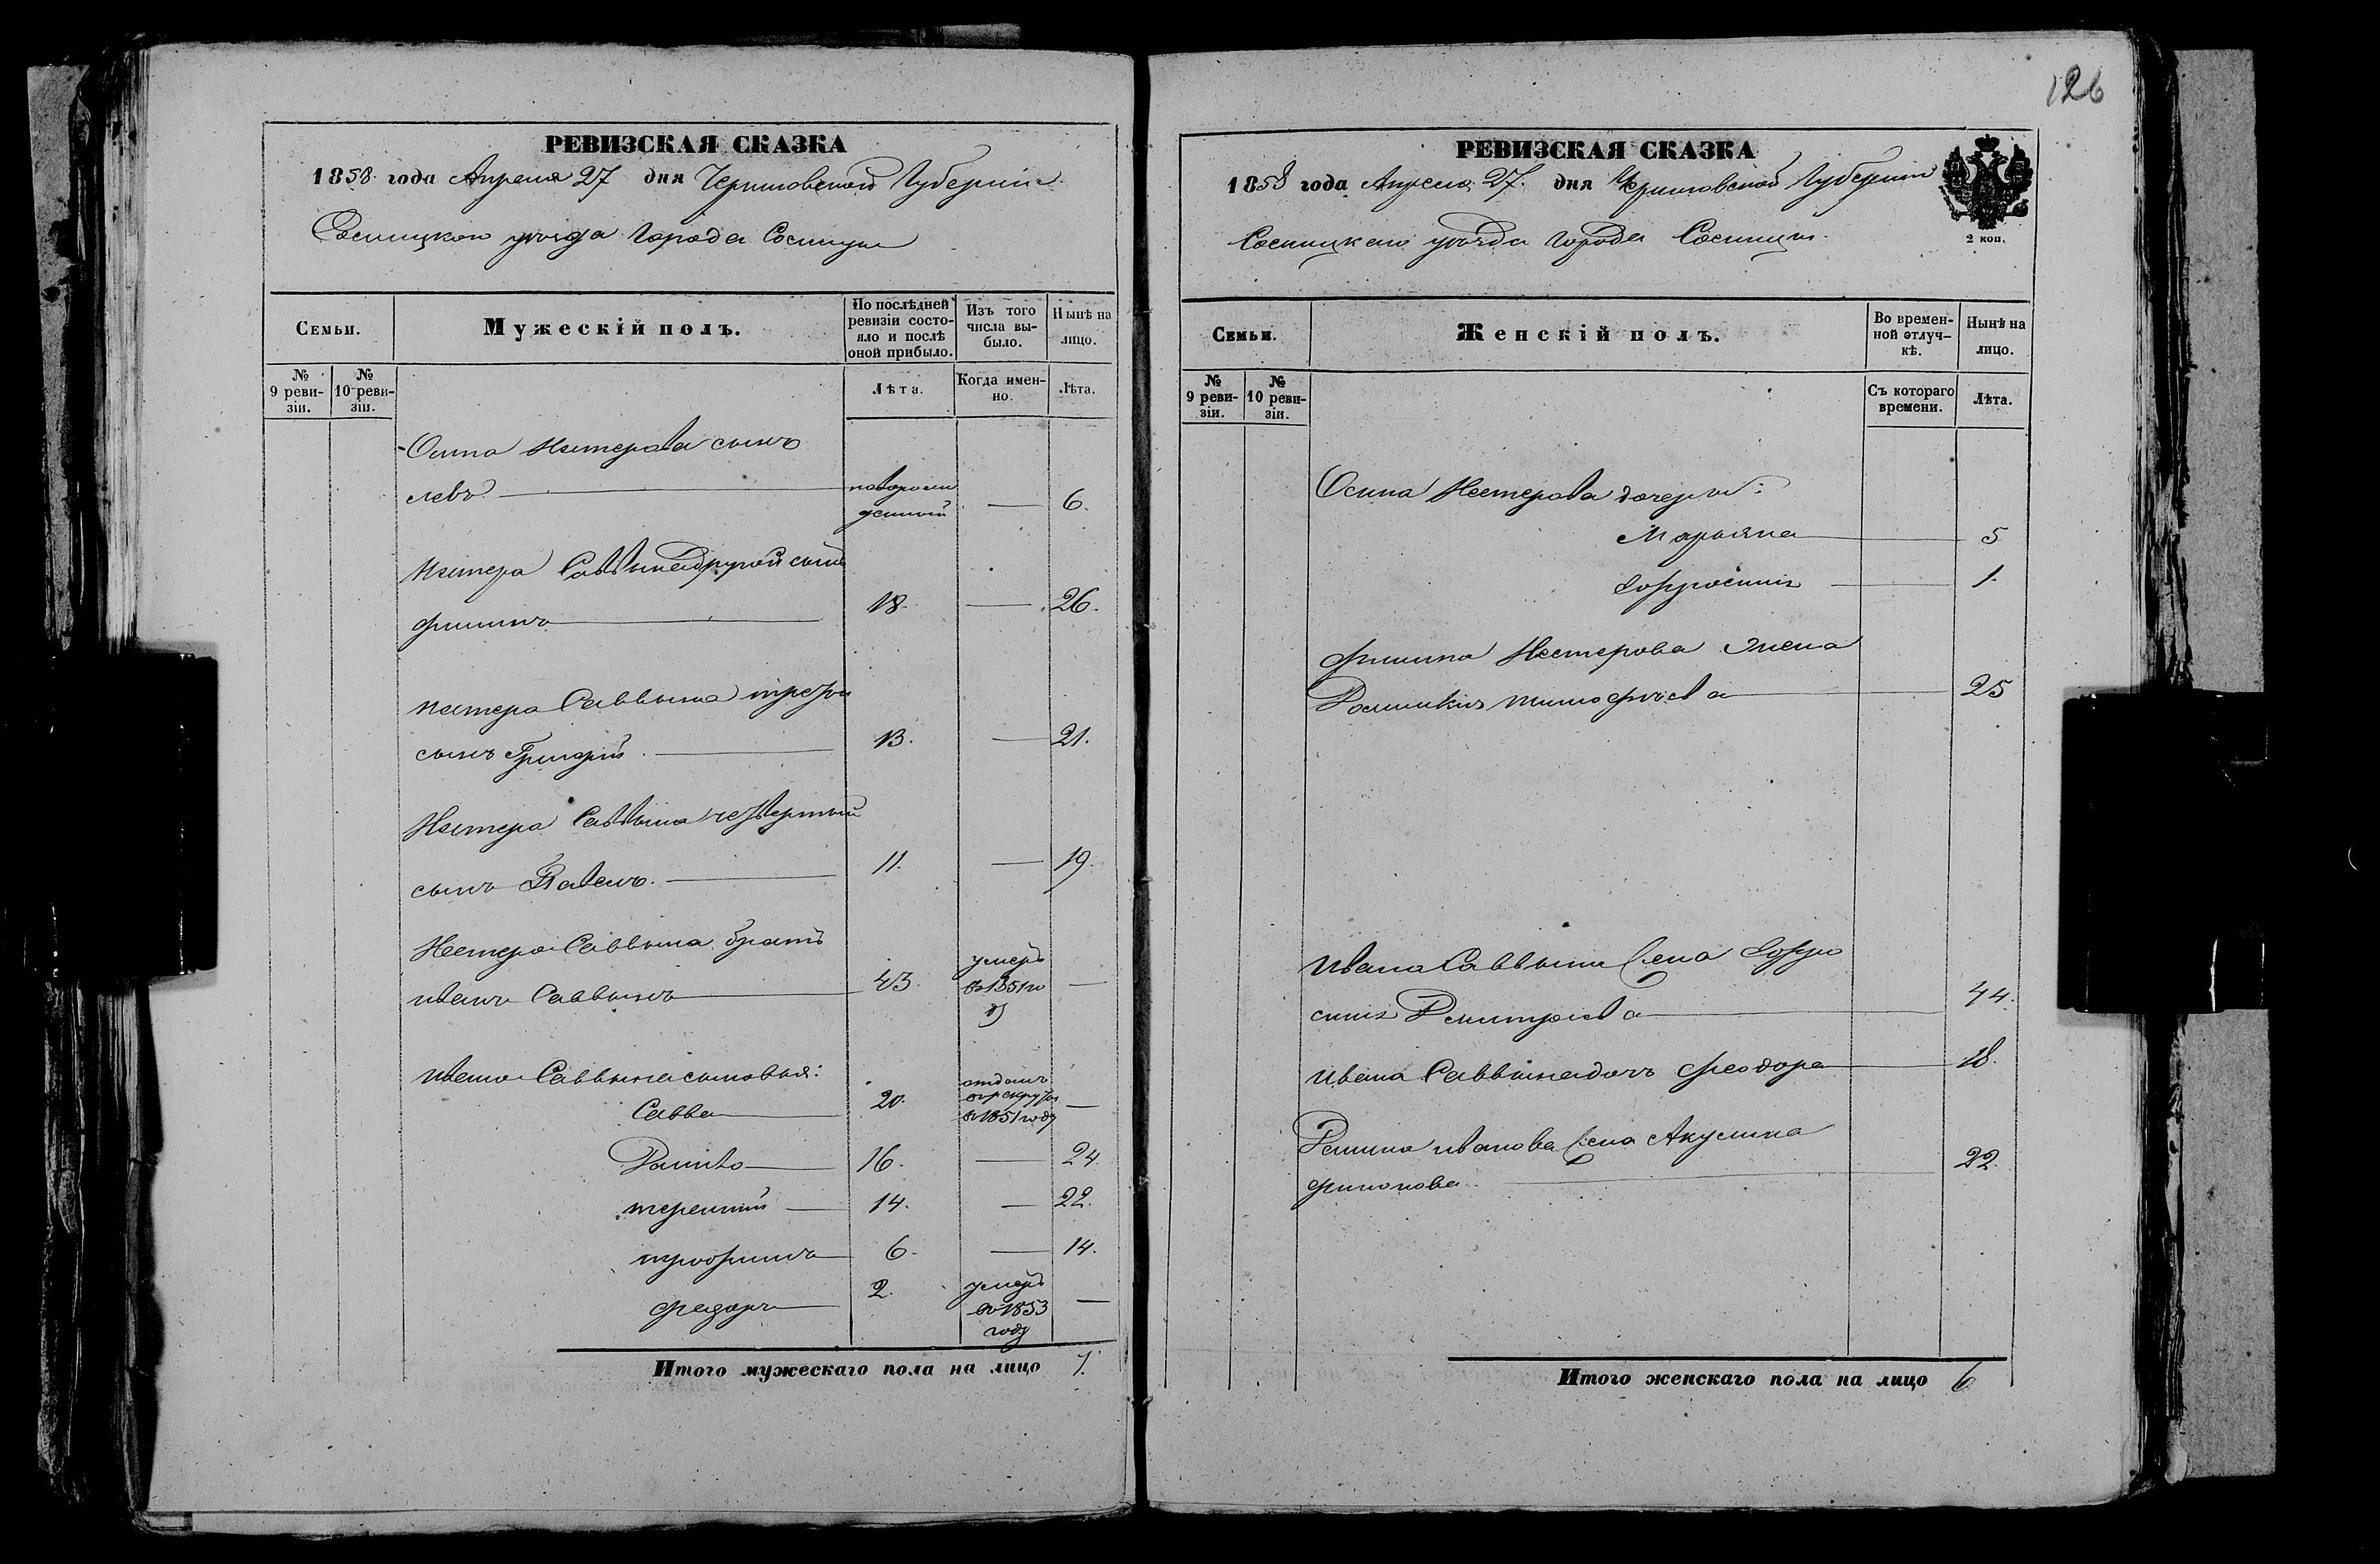 126
РЕВИЗСКАЯ СКАЗКА
1858 года Апреля 27 дня Черниговской Губернии
Сосницкого уезда города Сосницы
Семьи.
Мужескій полъ.
По послѣдней ревизіи состо-
яло и послѣ
оной прибыло.
Изъ того
числа вы-
было.
Нынѣ на
лицо.
№
9 реви-
зіи.
№
10 реви-
зіи.
Лѣта.
Когда имен-
но.
Лѣта.
Осипа Нестерова сынъ
Левъ новорож
денный — 6.
Нестера Саввина другой сынъ
Филипъ 18. — 26.
Нестера Саввина третій
сынъ Григорій 13. — 21.
Нестера Саввина четвертый
сынъ Павелъ. 11. — 19.
Нестера Саввина братъ
Иванъ Саввинъ 43. умеръ
въ 1851 го
ду —
Ивана Саввина сыновья:
Савва 20. отданъ
въ рекруты
в 1851 году —
Данило 16. — 24.
Терентий 14. — 22.
Трофимъ 6. — 14.
Федоръ 2. умеръ
въ 1853
году —
Итого мужескаго пола на лицо 7.
РЕВИЗСКАЯ СКАЗКА
1858 года Апреля 27. дня Черниговской Губернии
Сосницкаго уезда города Сосницы.
2 коп.
Семьи.
Женскій полъ.
Во времен-
ной отлуч-
кѣ.
Нынѣ на
лицо.
№
9 реви-
зіи.
№
10 реви-
зіи.
Съ котораго
времени.
Лѣта.
Осипа Нестерова дочери:
Марьяна 5
Ефросиния 1.
Филипа Нестерова жена
Домникия Тимофѣева 25
Ивана Саввина жена Ефро
синия Дмитриева 44.
Ивана Саввина дочь Феодора 18.
Данила Иванова жена Акулина
Филипова 22.
Итого женскаго пола на лицо 6